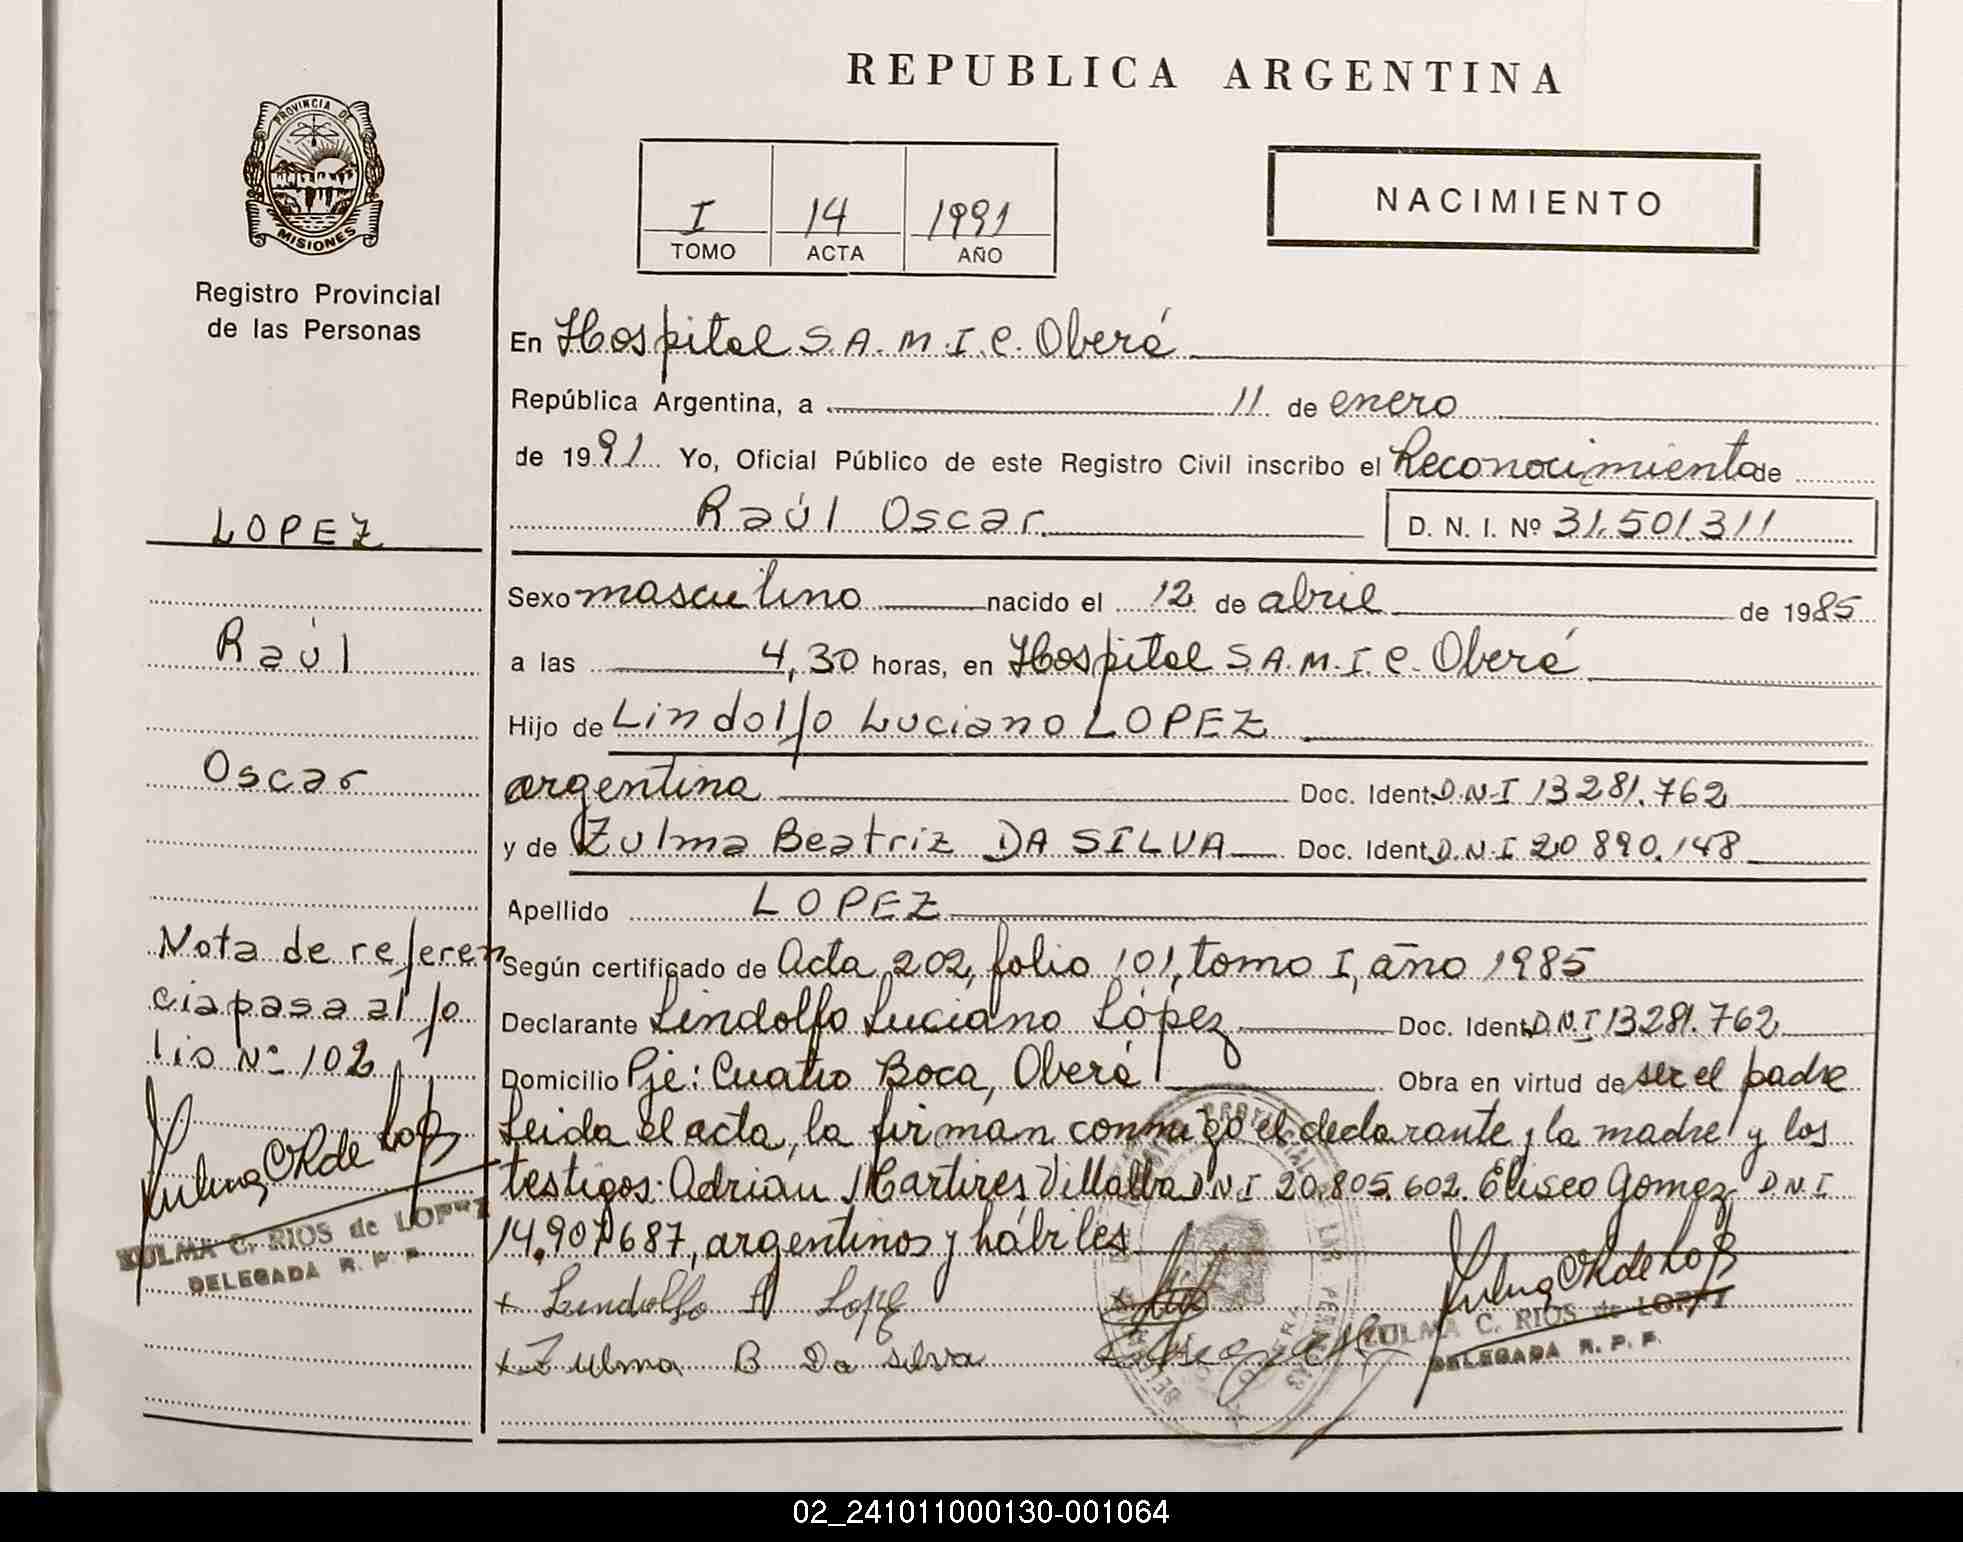 REPUBLICA ARGENTINA
PROVINCIA DE
MISIONES
Registro Provincial
de las Personas
I 14 1991
TOMO ACTA AÑO
NACIMIENTO
En Hospital S.A.M.I.C. Oberá
República Argentina, a 11 de enero
de 1991 Yo, Oficial Público de este Registro Civil inscribo el Reconocimiento de
Raúl Oscar D. N. I. Nº 31.501.311
LOPEZ
Raúl
Oscar
Nota de referen
cia pasa al fo
lio Nº 102
ZULMA C. RIOS de LOPEZ
DELEGADA R. P. P.
Sexo masculino nacido el 12 de abril de 1985
a las 4,30 horas, en Hospital S.A.M.I.C. Oberá
Hijo de Lindolfo Luciano LOPEZ
argentina Doc. Ident. D.N.I 13281.762
y de Zulma Beatriz DA SILVA Doc. Ident. D.N.I 20890.148
Apellido LOPEZ
Según certificado de Acta 202, folio 101, tomo I, año 1985
Declarante Lindolfo Luciano López Doc. Ident. D.N.I 13281.762
Domicilio Pje: Cuatro Boca, Oberá Obra en virtud de ser el padre
Leida el acta, la firman conmigo el declarante, la madre y los
testigos: Adrián Martires Villalba D.N.I 20.805.602. Eliseo Gomez D.N.I
14.907687, argentinos y hábiles
x Lindolfo L Lopez
x Zulma B Da Silva
ZULMA C. RIOS de LOPEZ
DELEGADA R. P. P.
02_241011000130-001064